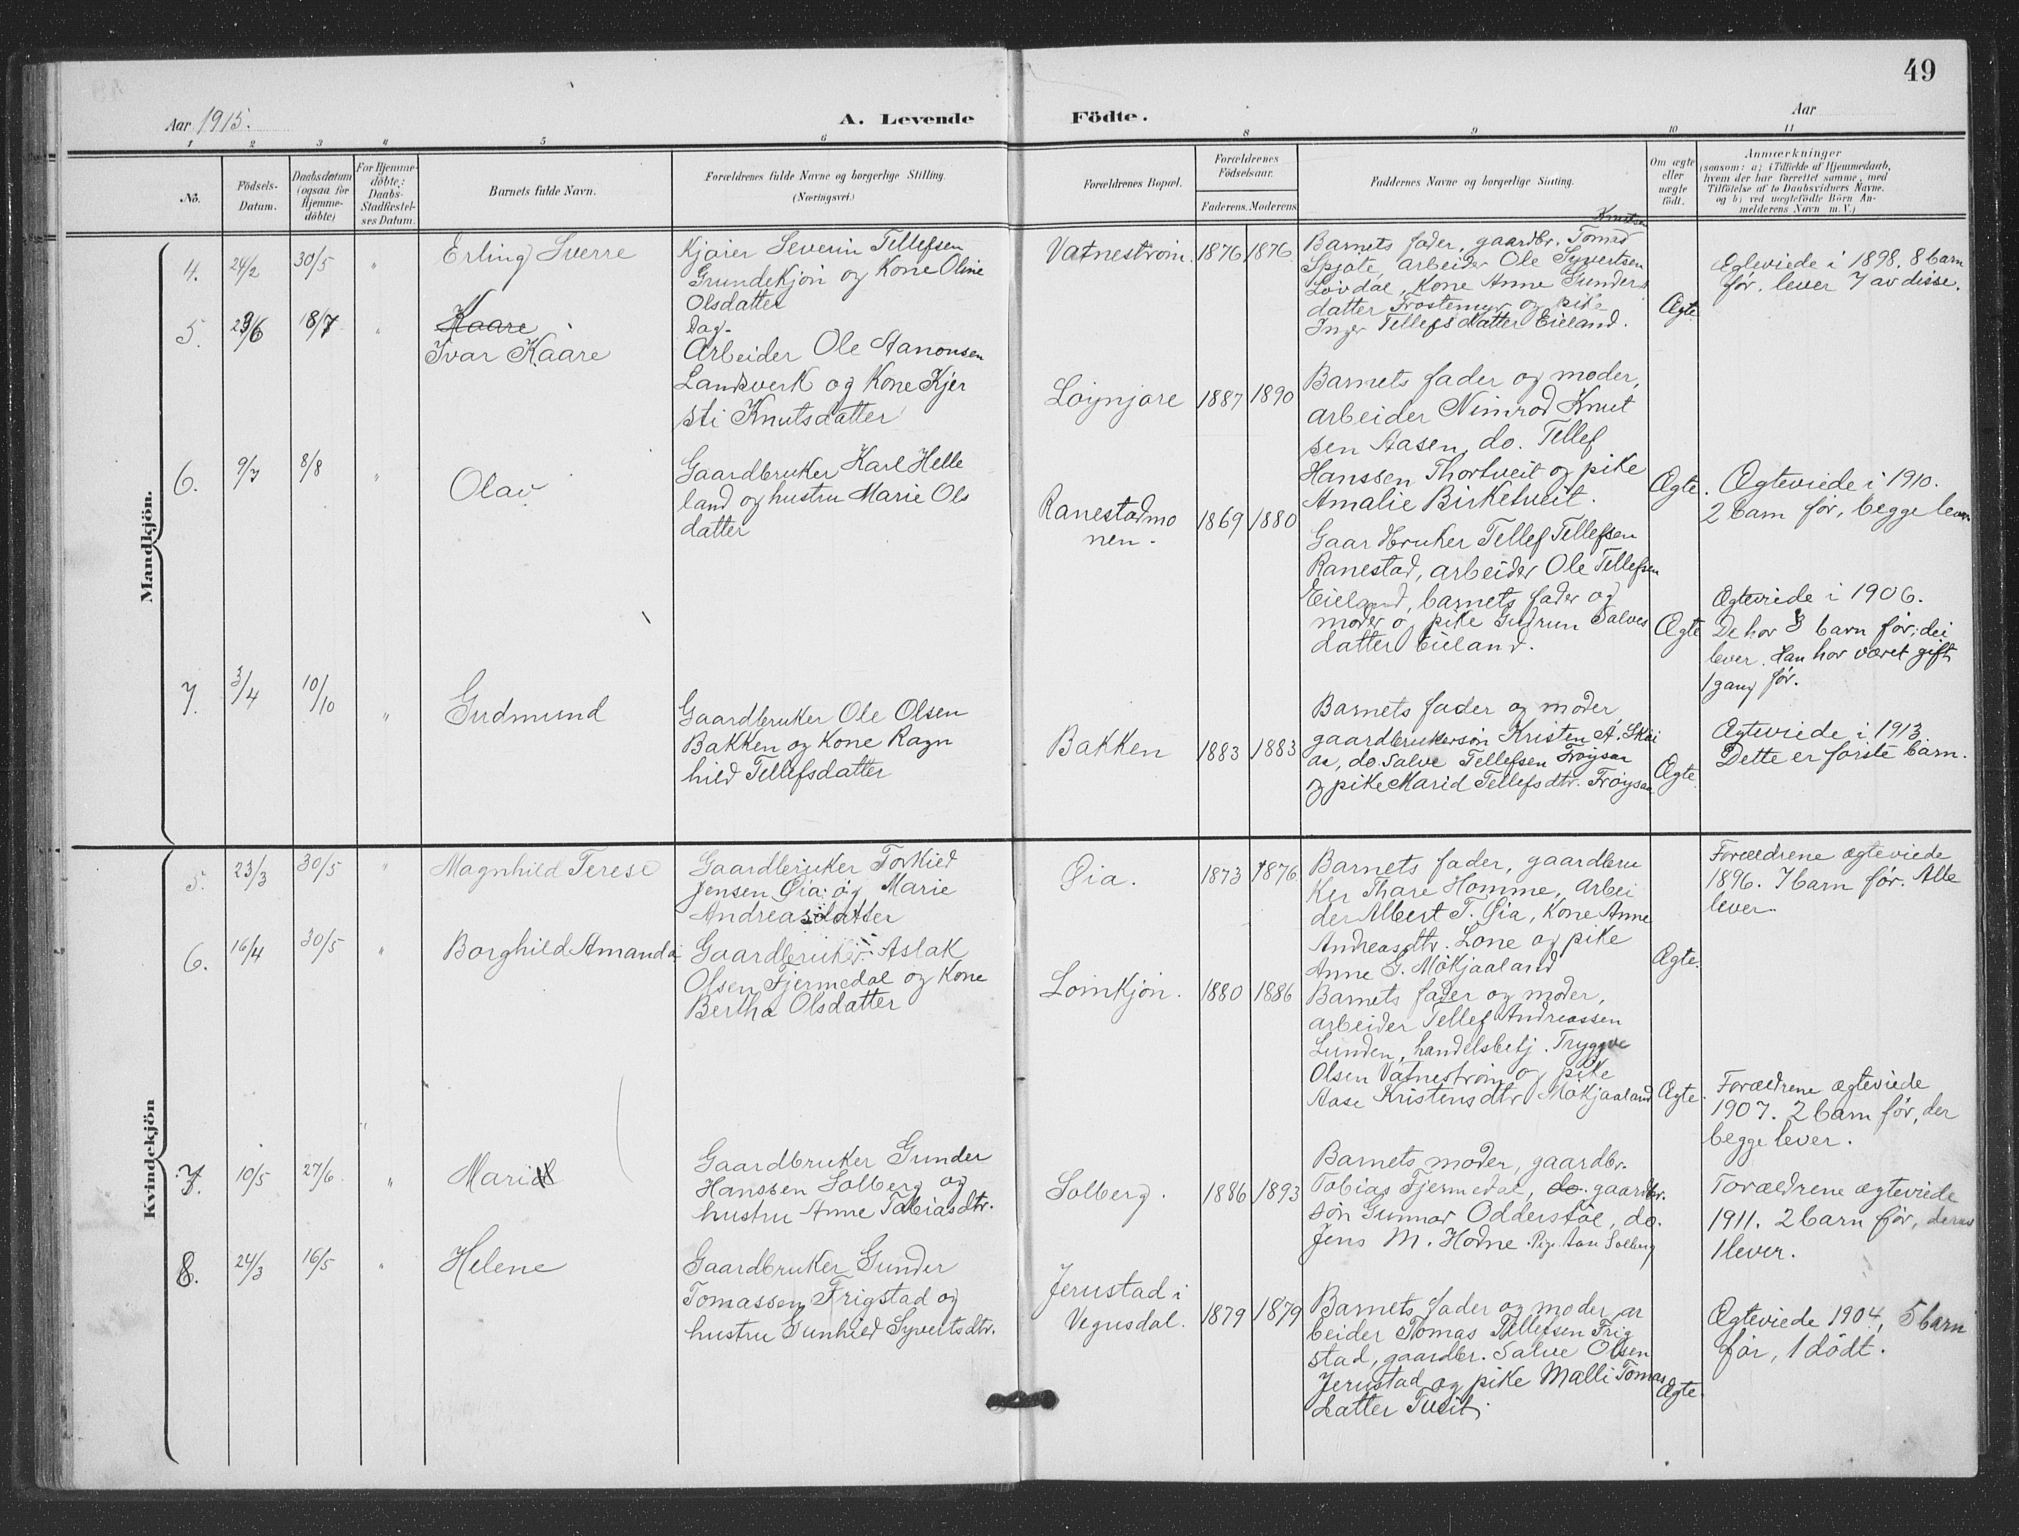 49
Aar 1915.
A. Levende Födte.
Aar
1 2 3 " 5 6 8 9 10 11
No.
Födsels-
Datum.
Daabsdatum
(ogsaa for
Hjemme-
döbte)
For Hjemme-
döbte;
Daabs-
Stadfæstel-
ses Datum.
Barnets fulde Navn.
Forældrenes fulde Navne og borgerlige Stilling.
(Næringsvei.)
Forældrenes Bopæl.
Forældrenes
Födselsaar.
Faderens. Moderens.
Faddernes Navne og borgerlige Stilling.
Om ægte
eller
uægte
födt.
Anmærkninger
(saasom: a) i Tilfælde af Hjemmedaab,
hvem der har forrettet samme, med
Tilföielse af to Daabsvidners Navne.
og b) ved uægtefödte Börn An-
melderens Navn m. V.)
Mandkjön.
4. 24/2 30/5 " Erling Sverre
Kjører Severin Tellefsen
Grundekjøn og Kone Oline
Olsdatter
Vatnestrøm. 1876 1876
Knutsen
Barnets fader, gaardbr. Tomas
Spjote, arbeider Ole Syvertsen
Lovdal, Kone Anne Gunders
datter Frostemyr og pike
Inger Tellefsdatter Eieland.
Ægte.
Ægteviede i 1898. 8 barn
før, lever 7 av disse.
5. 29/6 18/7 " Kaare
Ivar Kaare
Dag-
Arbeider Ole Aanonsen
Landsverk og Kone Kjer
sti Knutsdatter
Løynjøre 1887 1890
Barnets fader og moder,
arbeider Nimrod Knut
sen Aasen, do. Tellef
Hanssen Thortveit og pike
Amalie Birketveit.
Ægte.
Ægteviede i 1910.
2 barn før, begge lever
6. 9/7 8/8 " Olav
Gaardbruker Karl Helle
land og hustru Marie Ols
datter
Ranestadmo
nen. 1869 1880
Gaardbruker Tellef Tellefsen
Ranestad, arbeider Ole Tellefsen
Eieland, barnets fader og
moder o, pike Gudrun Salves
datter Eieland.
Ægte
Ægteviede i 1906.
De har 3 barn før; dei
lever. Han har været gift
1 gang før.
7. 3/4 10/10 " Gudmund
Gaardbruker Ole Olsen
Bakken og Kone Ragn
hild Tellefsdatter
Bakken 1883 1883
Barnets fader og moder
gaardbrukersøn Kristen A. Skei
as, do. Salve Tellefsen Frøysaa
og pike Marid Tellefsdtr. Frøysaa
Ægte.
Ægteviede i 1913.
Dette er første barn.
Kvindekjön
5. 23/3 30/5 " Magnhild Terese
Gaardbruker Torkied
Jensen Øia og Marie
Andreasdatter
Øia. 1873 1876
Barnets fader, gaardbru
ker Thare Homme, arbei
der Albert T. Øia, Kone Anne
Andreasdtr. Lone og pike
Anne G. Møkjaaland
Ægte.
Forældrene ægteviede
1896. 7 barn før. Alle
lever.
6. 16/4 30/5 " Borghild Amanda
Gaardbruker Aslak
Olsen Fjermedal og Kone
Bertha Olsdatter
Lømkjøn. 1880 1886
Barnets fader og moder,
arbeider Tellef Andreassen
Lunden, handelsbetj. Tryggve
Olsen Vatnestrøm og pike
Aase Kristensdtr Møkjaaland
Ægte.
Forældrene ægteviede
1907. 2 barn før, der
begge lever.
"
7. 10/5 27/6 " Mari
Gaardbruker Gunder
Hanssen Solberg og
hustru Anne Tobiasdtr.
Solberg. 1886 1893
Barnets moder, gaardbr.
Tobias Fjermedal, do. gaardbr.
søn Gunnar Odderstøl, do.
Jens M. Hodne. Pig. Solberg
Forældrene ægteviede
1911. 2 barn før, derav
1 lever.
8. 24/3 16/5 " Helene
Gaardbruker Gunder
Tomassen Frigstad og
hustru Gunhild Syvertsdtr.
Jerustad i
Vegusdal. 1879 1879
Barnets fader og moder, ar
beider Tomas Tellefsen Frig
stad, gaardbr. Salve Olsen
Jerustad og pike Malli Tomas
datter Tveit.
Ægte.
Ægteviede 1904, 5 barn
før, 1 dødt.